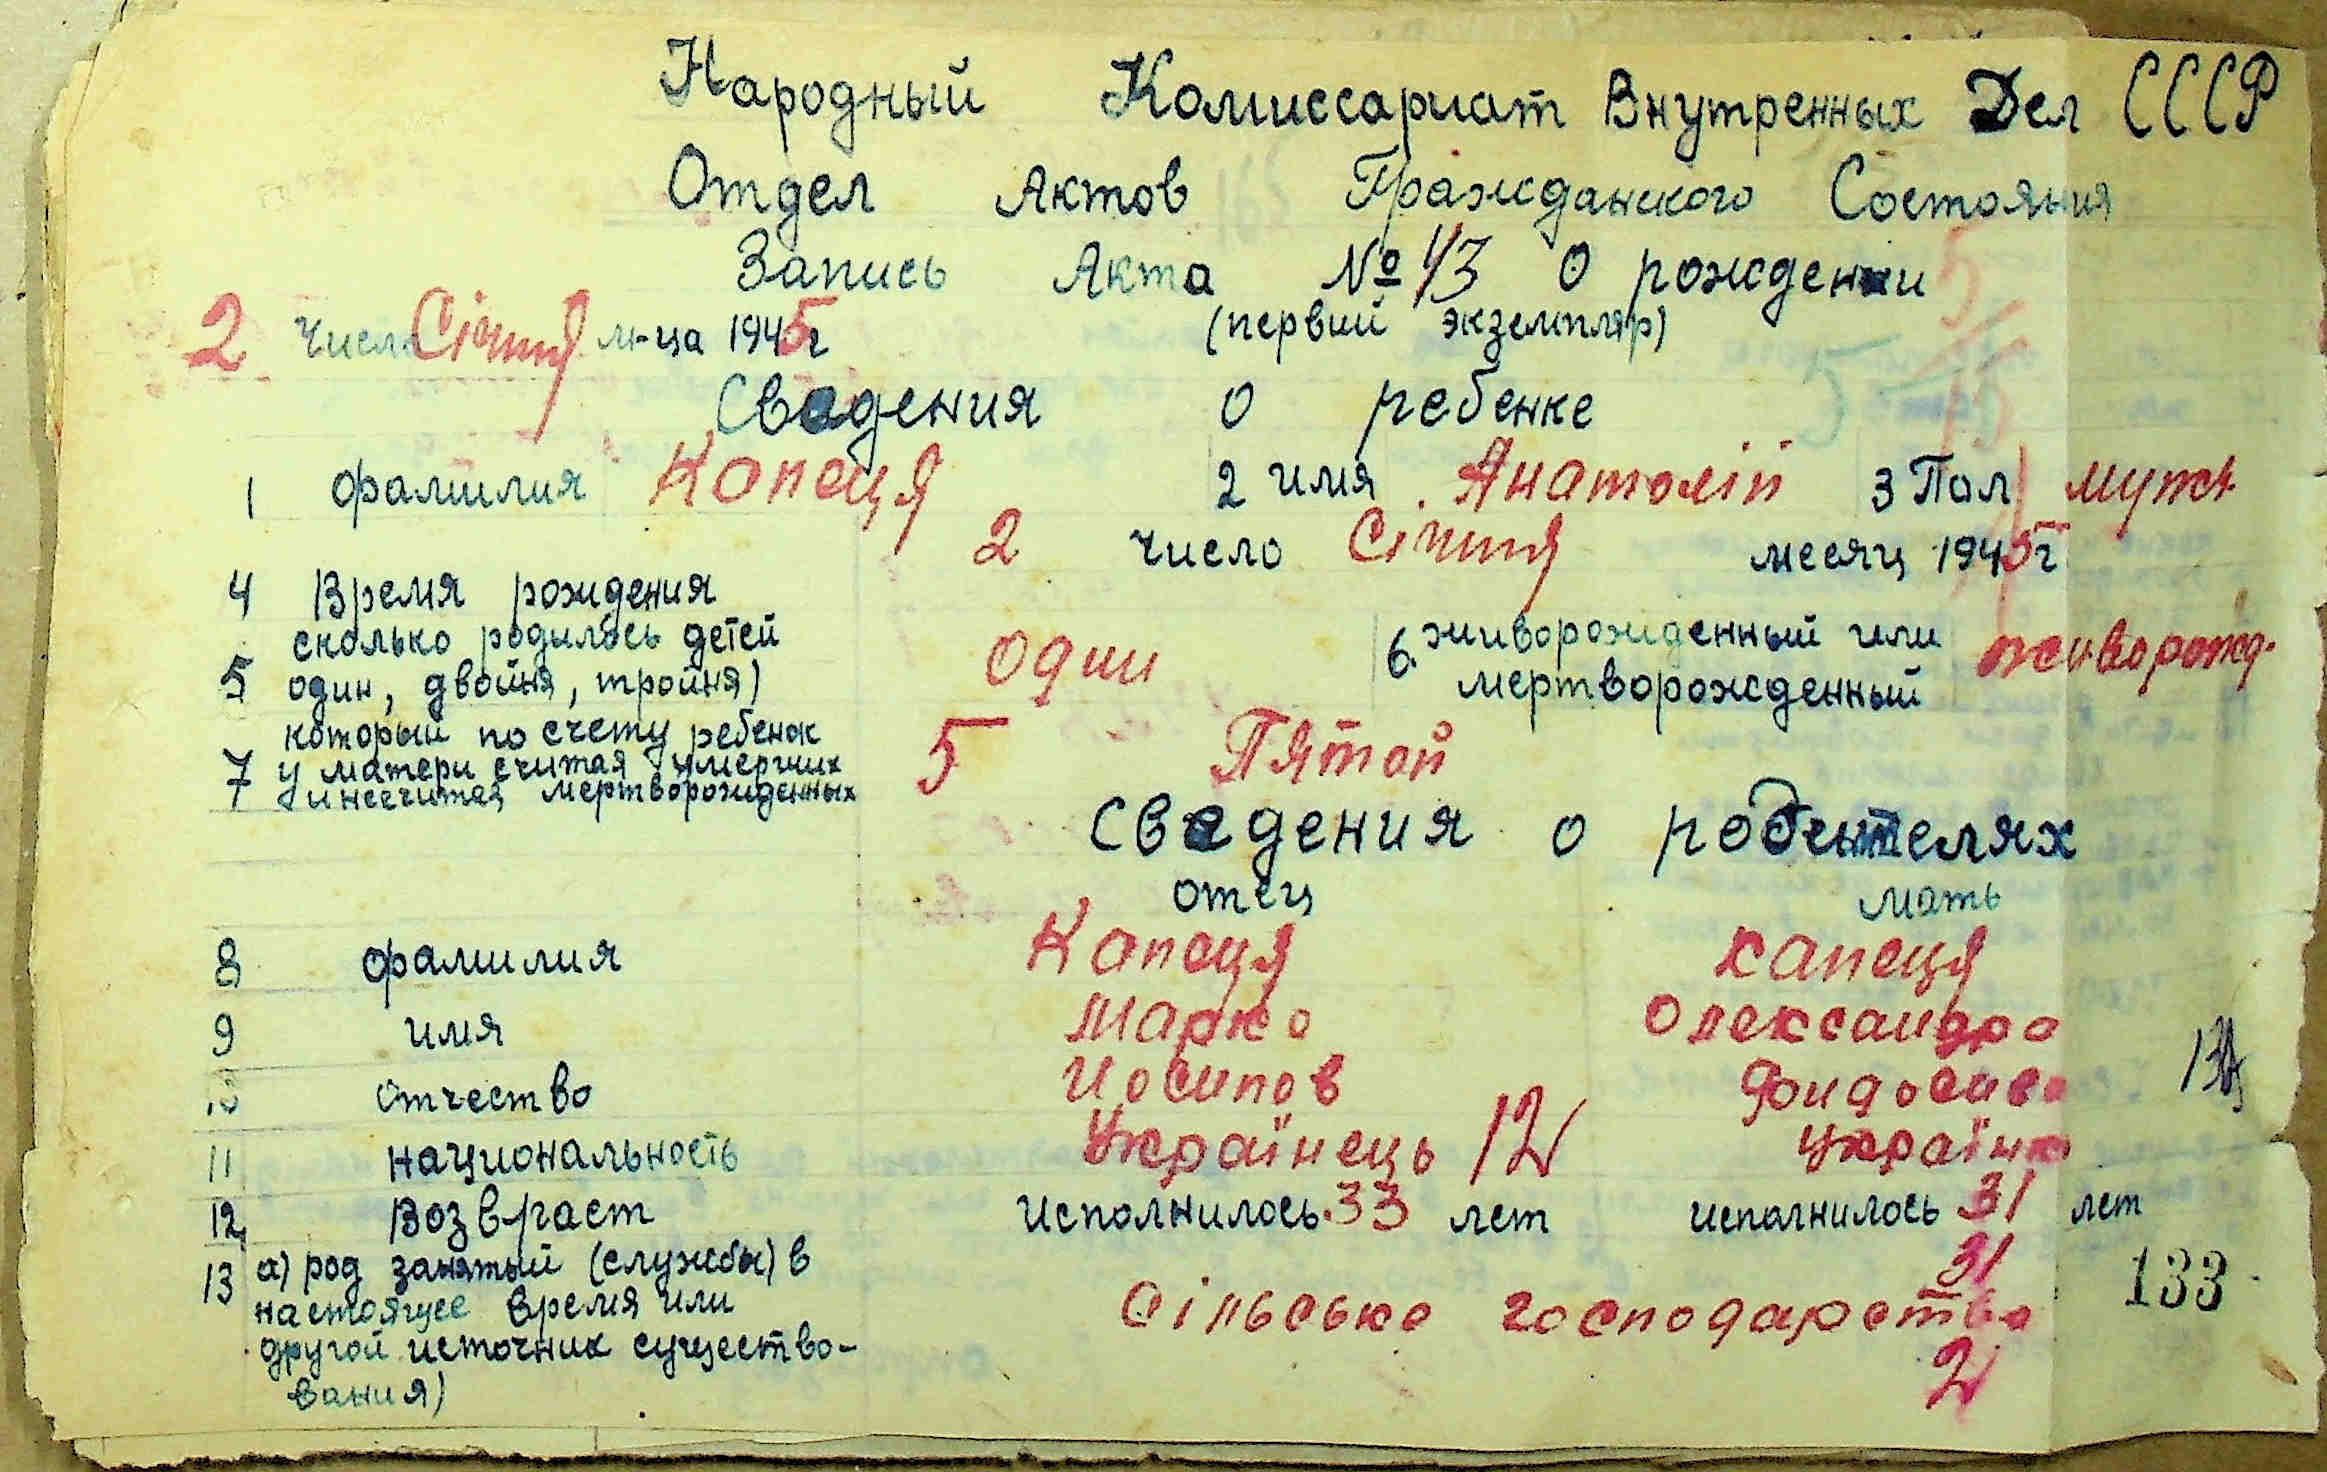 Народный Комиссариат Внутренных Дел СССР
Отдел Актов Гражданского Состояния
Запись Акта № 43 о рождении
(первий экземпляр)
2 Число Січня м-ца 1945г
Сведения о ребенке
1 фамилия Копеця 2 имя Анатолій 3 Пол муж
2 число Січня месяц 1945г
4 Время рождения
5 сколько родилось детей
один, двойня, тройня) один 6. живорожденный или
мертворожденный живорожд.
7 который по счету ребенок
у матери считая умерших
и несчитая мертворожденных 5 Пятой
Сведения о родителях
отец мать
8 фамилия Копеця Капеця
9 имя Марко Олександра
10 отчество Иосипов
11 национальность Українець 12 українк
12. Возвраст Исполнилось 33 лет исполнилось 31 лет
31
13 а) род занятый (службы) в
настоящее время или
другой источник существо-
вания) Сільсько господарство
2
133